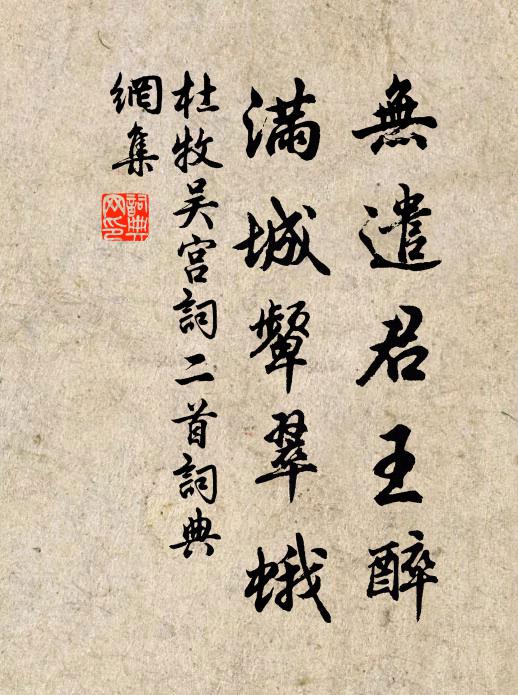 無遣君王醉
滿城顰翠蛾
杜牧吴宫詞二首詞典
網集
詞典
网印